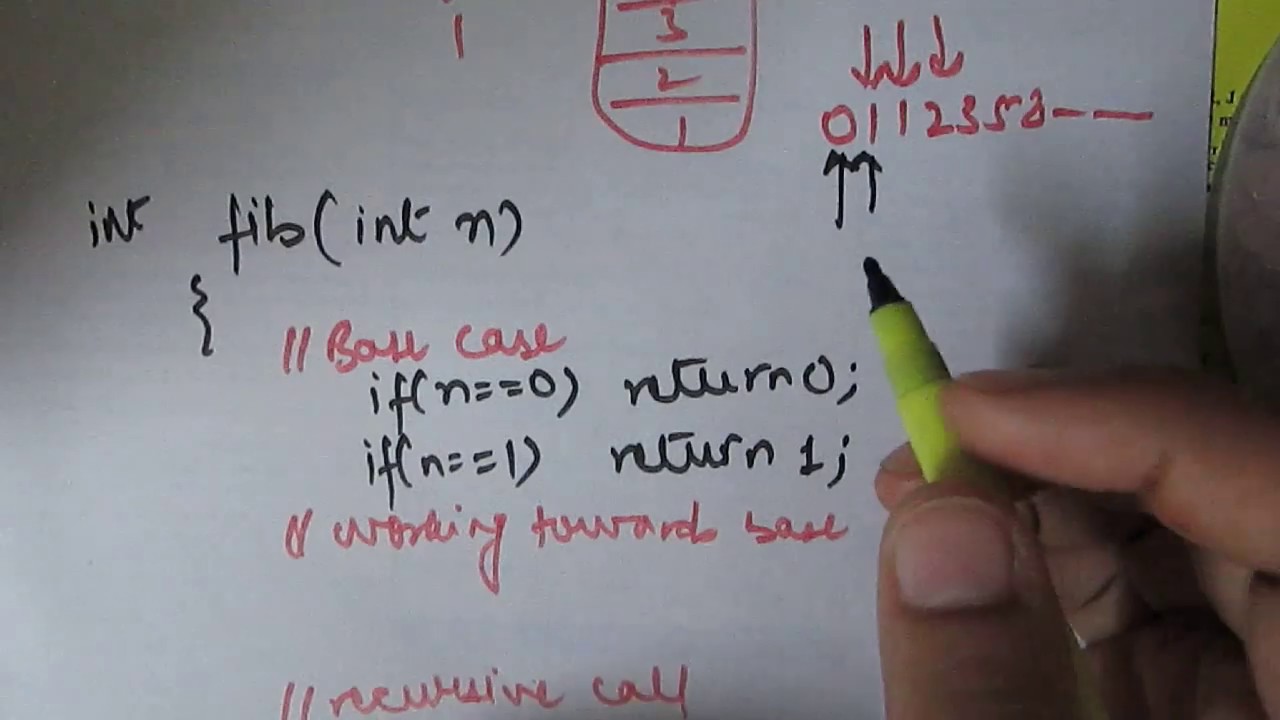 1
3
2
1
0112358----
int fib(int n)
{
// Base case
if(n==0) return 0;
if(n==1) return 1;
// working towards base
// recursive call